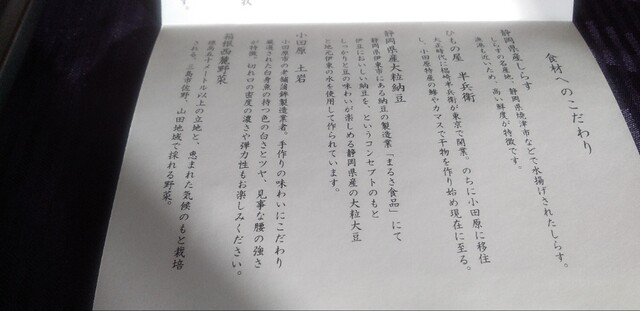 食材へのこだわり。
静岡県産しらす
しらすの名産地、静岡県焼津市などで水揚げされたしらす。
漁港も近いため、高い鮮度が特徴です。
ひもの屋 半兵衛
大正時代に 半兵衛が東京で開業。のちに小田原に移住
し、小田原特産の鯵やカマスで干物を作り始め現在に至る。
静岡県産大粒納豆
静岡県伊東市にある納豆の製造業「まるさ食品」にて
伊豆においしい納豆を、というコンセプトのもと
しっかりと豆の味わいが楽しめる静岡県産の大粒大豆
と地元伊東の水を使用して作られています。
小田原 土岩
小田原市の老舗蒲鉾製造業者。手作りの味わいにこだわり
厳選された白身魚の持つ色の白さとツヤ、見事な腰の強さ
が特徴。切れ口の密度の濃さや弾力性もお楽しみください。
箱根西麓野菜
標高五十メートル以上の立地と、恵まれた気候のもと栽培
される、三島市佐野、山田地域で採れる野菜。
す。